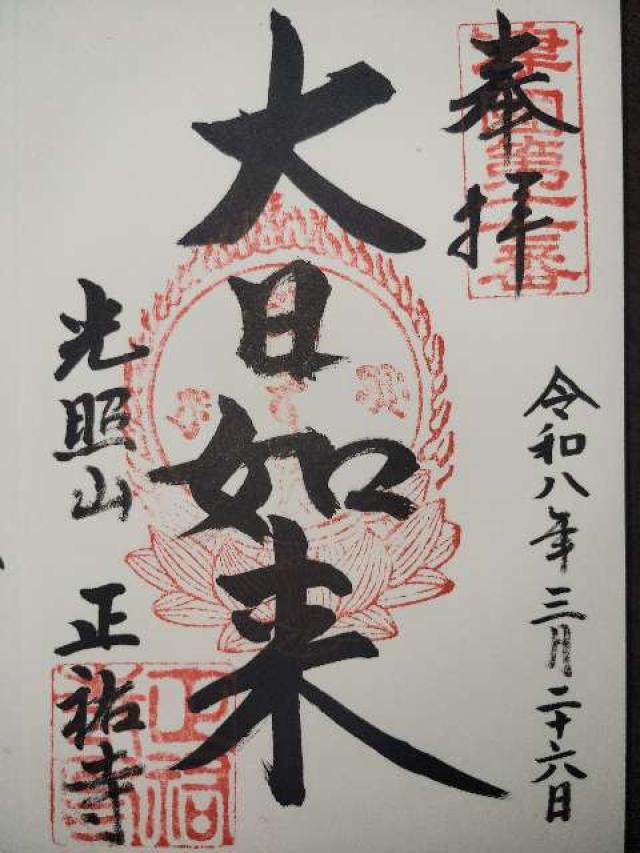 奉拝
令和八年三月二十六日
大日如来
光照山 正祐寺